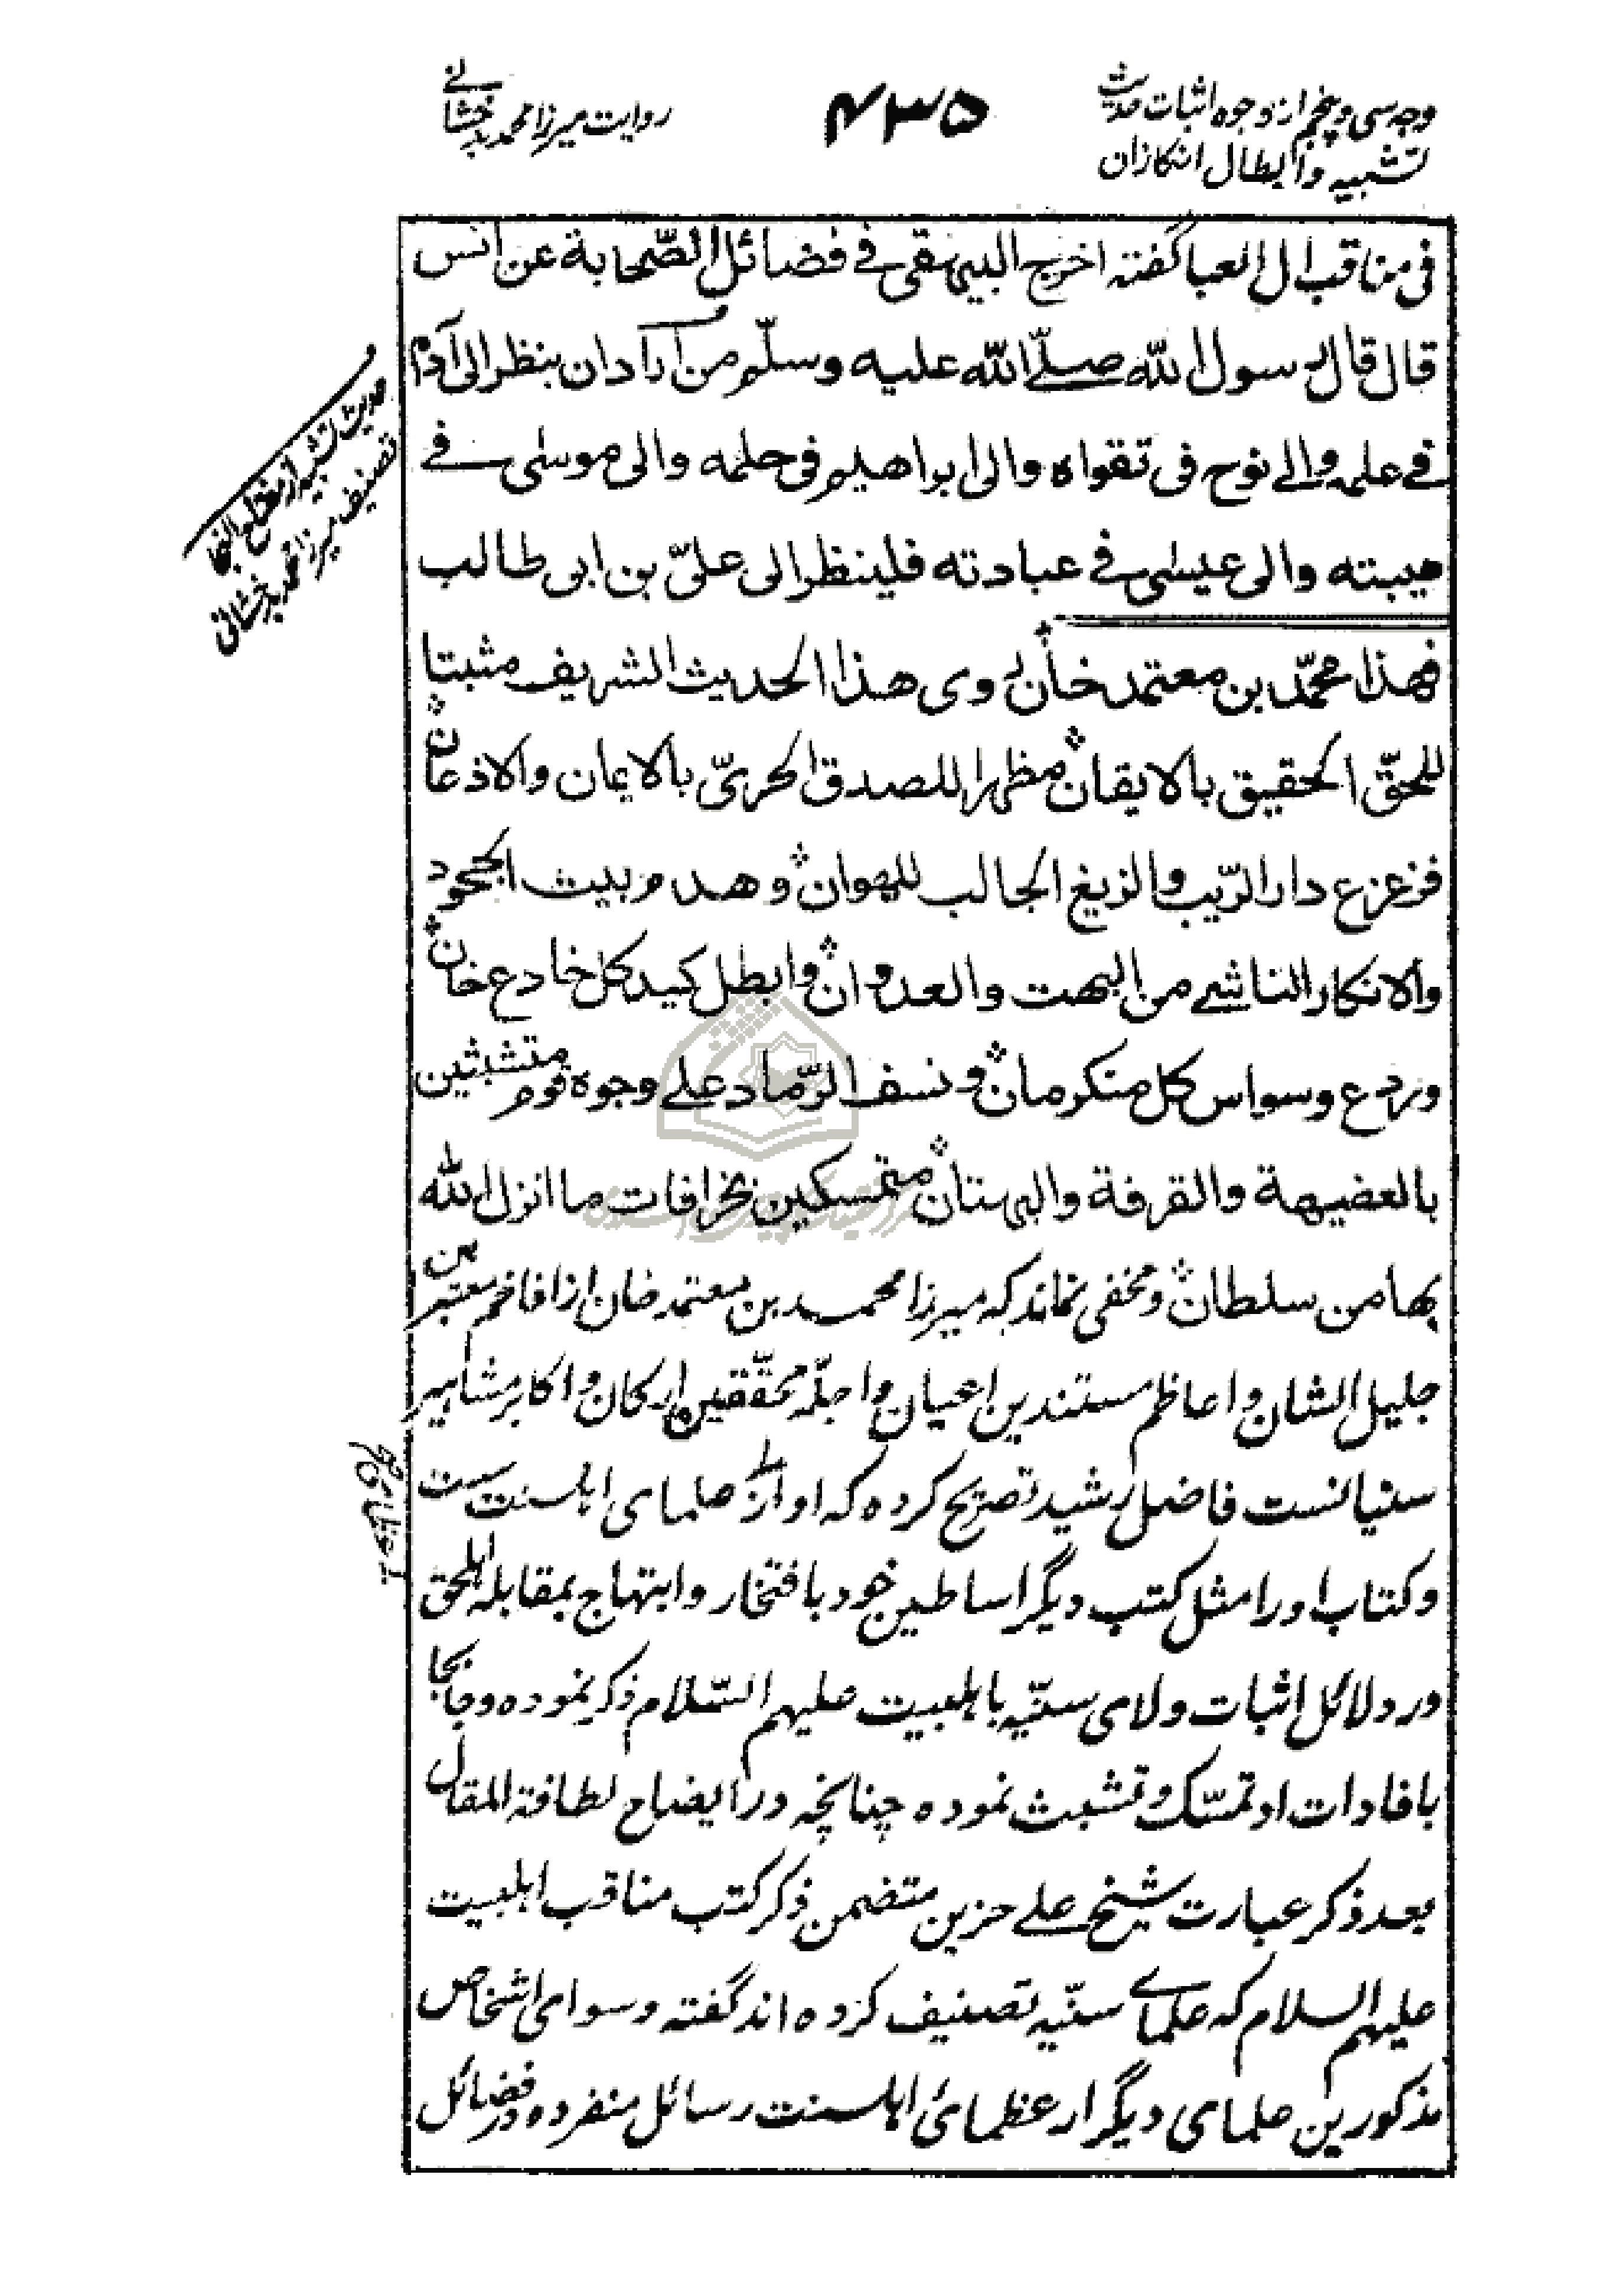 وجه سی و پنجم از وجوه اثبات حدیث
تشبیه و ابطال انکار آن
۴۳۵
روایت میرزا محمد بدخشانی
فی مناقب ال العبا گفته اخرج البیهقی فی فضائل الصّحابة عن انس
قال قال رسول الله صلّی الله علیه وسلّم من اراد ان ینظر الی آدم
فی علمه والی نوح فی تقواه والی ابراهیم فی حلمه والی موسٰی فی
هیبته والی عیسٰی فی عبادته فلینظر الی علیّ بن ابی طالب
فهذا محمّد بن معتمد خان روی هذا الحدیث الشریف مثبتا
للحقّ الحقیق بالایقان مظهرا للصدق الحریّ بالایمان والاذعان
فزعزع دار الرّیب والزیغ الجالب للهوان وهدم بیت الجحود
والانکار الناشی من البهت والعدوان وابطل کید کل خادع خان
وردع وسواس کل منکر مان ونسف الرّماد علی وجوه قوم متشبثین
بالعضیهة والقرفة والبهتان متمسکین بخرافات ما انزل الله
بها من سلطان و مخفی نماند که میرزا محمد بن معتمد خان از افاخم معتبرین
جلیل الشان و اعاظم مستندین اعیان و اجلّه محقّقین ارکان و اکابر مشاهیر
سنیانست فاضل رشید تصریح کرده که او از علمای اهلسنت ست
و کتاب او را مثل کتب دیگر اساطین خود با افتخار و ابتهاج بمقابله اهلحق
در دلائل اثبات ولای سنّیه با اهلبیت علیهم السّلام ذکر نموده و جابجا
بافادات او تمسّک و تشبث نموده چنانچه در ایضاح لطافة المقال
بعد ذکر عبارت شیخ علی حزین متضمن ذکر کتب مناقب اهلبیت
علیهم السلام که علمای سنّیه تصنیف کرده اند گفته و سوای اشخاص
مذکورین علمای دیگر از عظمائ اهلسنت رسائل منفرده در فضائل
حدیث تشبیه از مفتاح النجا
تصنیف میرزا محمد بدخشانی